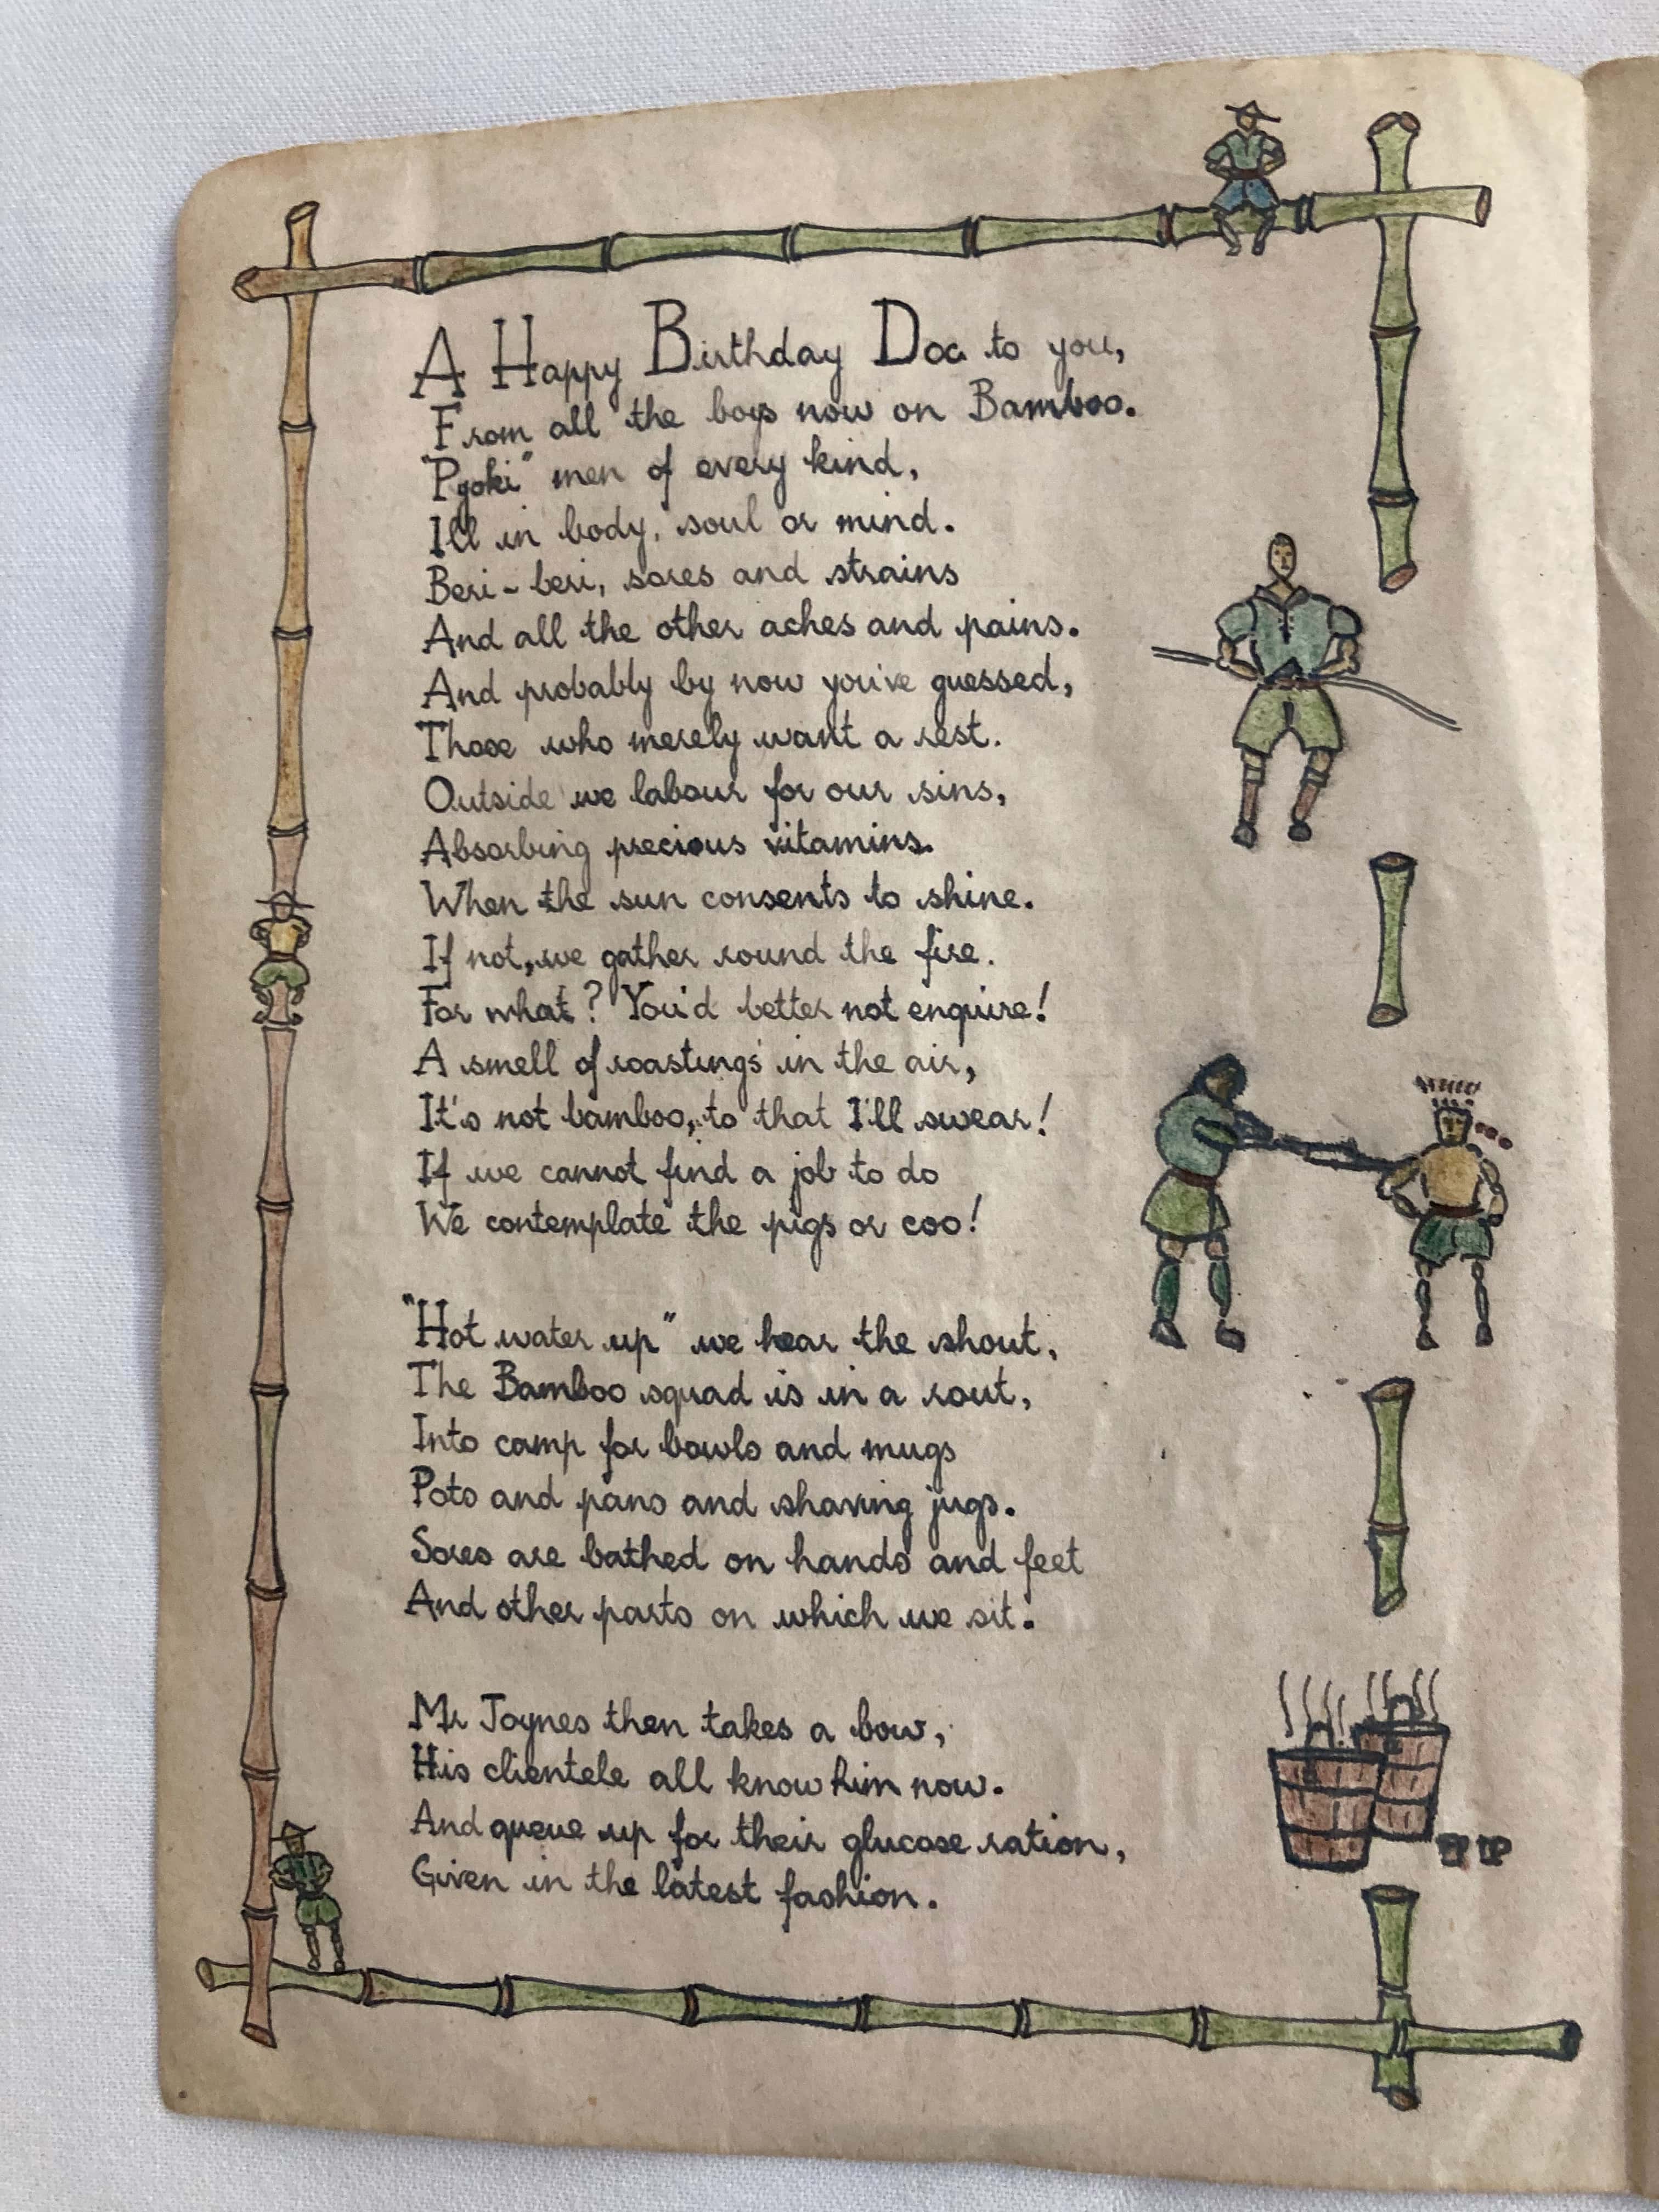 A Happy Birthday Doc to you,
From all the boys now on Bamboo.
"Pyoki" men of every kind,
Ill in body, soul or mind.
Beri-beri, sores and strains
And all the other aches and pains.
And probably by now you've guessed,
Those who merely want a rest.
Outside we labour for our sins,
Absorbing precious vitamins.
When the sun consents to shine.
If not, we gather round the fire.
For what? You'd better not enquire!
A smell of roasting's in the air,
It's not bamboo, to that I'll swear!
If we cannot find a job to do
We contemplate the pigs or coo!
"Hot water up" we hear the shout,
The Bamboo squad is in a rout,
Into camp for bowls and mugs
Pots and pans and shaving jugs.
Sores are bathed on hands and feet
And other parts on which we sit.
Mr Joynes then takes a bow,
His clientele all know him now.
And queue up for their glucose ration,
Given in the latest fashion.